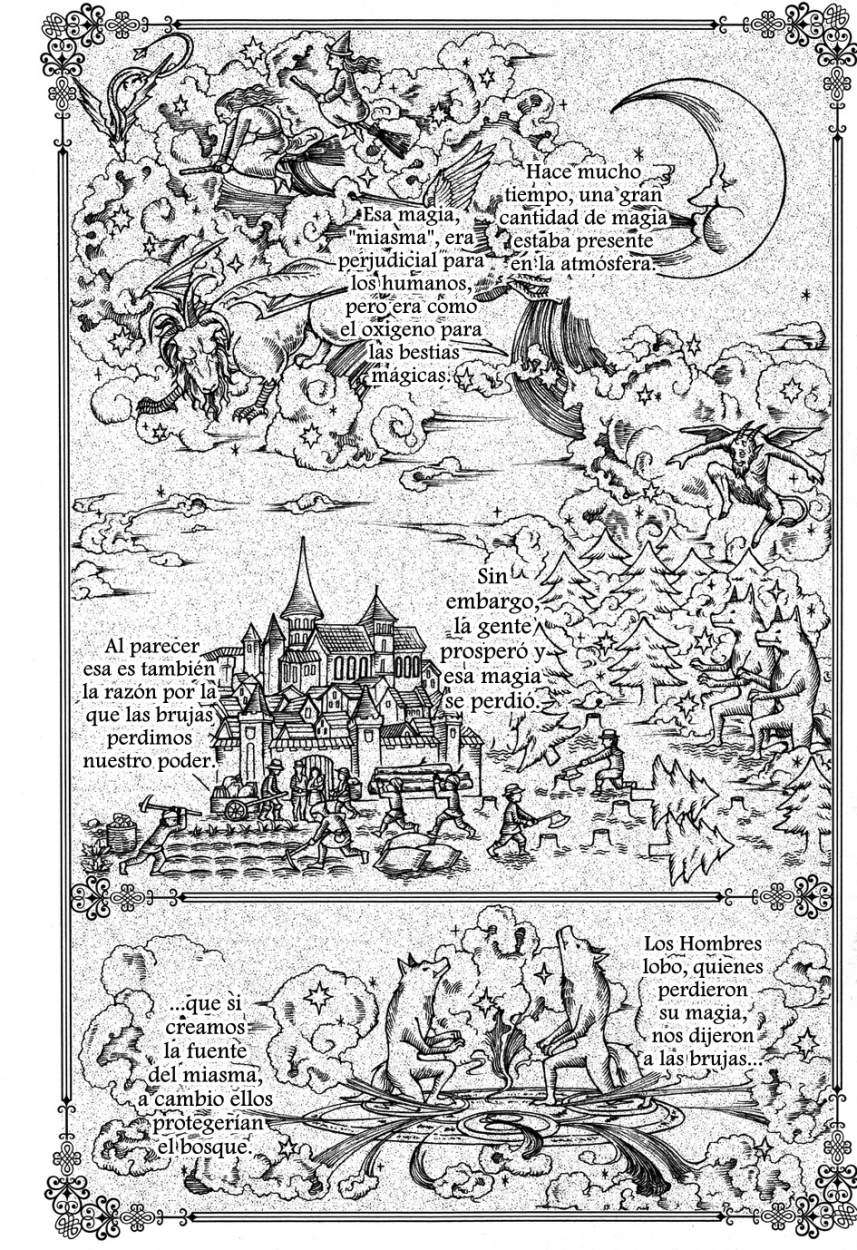 Hace mucho
tiempo, una gran
cantidad de magia
estaba presente
en la atmósfera.
Esa magia,
"miasma", era
perjudicial para
los humanos,
pero era como
el oxigeno para
las bestias
mágicas.
Sin
embargo,
la gente
prosperó y
esa magia
se perdió.
Al parecer
esa es también
la razón por la
que las brujas
perdimos
nuestro poder.
Los Hombres
lobo, quienes
perdieron
su magia,
nos dijeron
a las brujas...
...que si
creamos
la fuente
del miasma,
a cambio ellos
protegerían
el bosque.